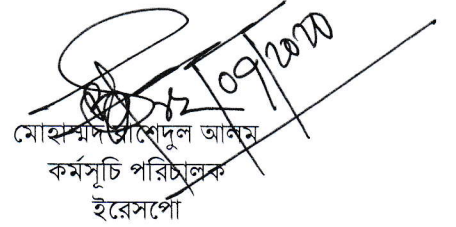 ০৯/২০২০
মোহাম্মদ রাশেদুল আলম
কর্মসূচি পরিচালক
ইরেসপো